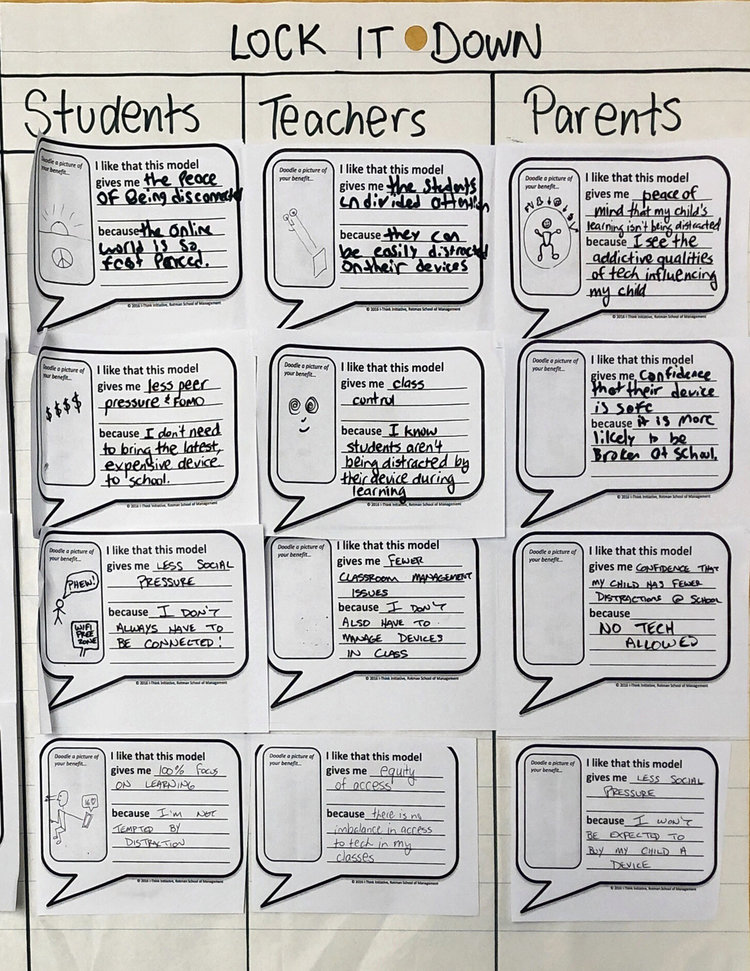 LOCK IT DOWN
Students
Doodle a picture of
your benefit...
I like that this model
gives me the Peace
OF Being disconnected
because the online
world is so
fast Paced.
© 2016 I-Think Initiative, Rotman School of Management
Doodle a picture of
your benefit...
$$$$
I like that this model
gives me less peer
pressure & FOMO
because I don't need
to bring the latest,
expensive device
to school.
© 2016 I-Think Initiative, Rotman School of Management
Doodle a picture of
your benefit...
PHEW!
WIFI
FREE
ZONE
I like that this model
gives me LESS SOCIAL
PRESSURE
because I DON'T
ALWAYS HAVE TO
BE CONNECTED!
© 2016 I-Think Initiative, Rotman School of Management
Doodle a picture of
your benefit...
I like that this model
gives me 100% FOCUS
ON LEARNING
because I'M NOT
TEMPTED BY
DISTRACTION
© 2016 I-Think Initiative, Rotman School of Management
Teachers
Doodle a picture of
your benefit...
I like that this model
gives me the Students
undivided attention
because they can
be easily distracted
on their devices
© 2016 I-Think Initiative, Rotman School of Management
Doodle a picture of
your benefit...
I like that this model
gives me class
control
because I know
students aren't
being distracted by
their device during
learning
© 2016 I-Think Initiative, Rotman School of Management
Doodle a picture of
your benefit...
I like that this model
gives me FEWER
CLASSROOM MANAGEMENT
ISSUES
because I DON'T
ALSO HAVE TO
MANAGE DEVICES
IN CLASS
© 2016 I-Think Initiative, Rotman School of Management
Doodle a picture of
your benefit...
I like that this model
gives me equity
of access
because there is no
imbalance in access
to tech in my
classes
© 2016 I-Think Initiative, Rotman School of Management
Parents
Doodle a picture of
your benefit...
I like that this model
gives me peace of
mind that my child's
learning isn't being distracted
because I see the
addictive qualities
of tech influencing
my child
© 2016 I-Think Initiative, Rotman School of Management
Doodle a picture of
your benefit...
I like that this model
gives me Confidence
that their device
is safe
because it is more
likely to be
Broken at School.
© 2016 I-Think Initiative, Rotman School of Management
Doodle a picture of
your benefit...
I like that this model
gives me CONFIDENCE THAT
MY CHILD HAS FEWER
DISTRACTIONS @ SCHOOL
because
NO TECH
ALLOWED
© 2016 I-Think Initiative, Rotman School of Management
Doodle a picture of
your benefit...
I like that this model
gives me LESS SOCIAL
PRESSURE
because I WON'T
BE EXPECTED TO
BUY MY CHILD A
DEVICE
© 2016 I-Think Initiative, Rotman School of Management